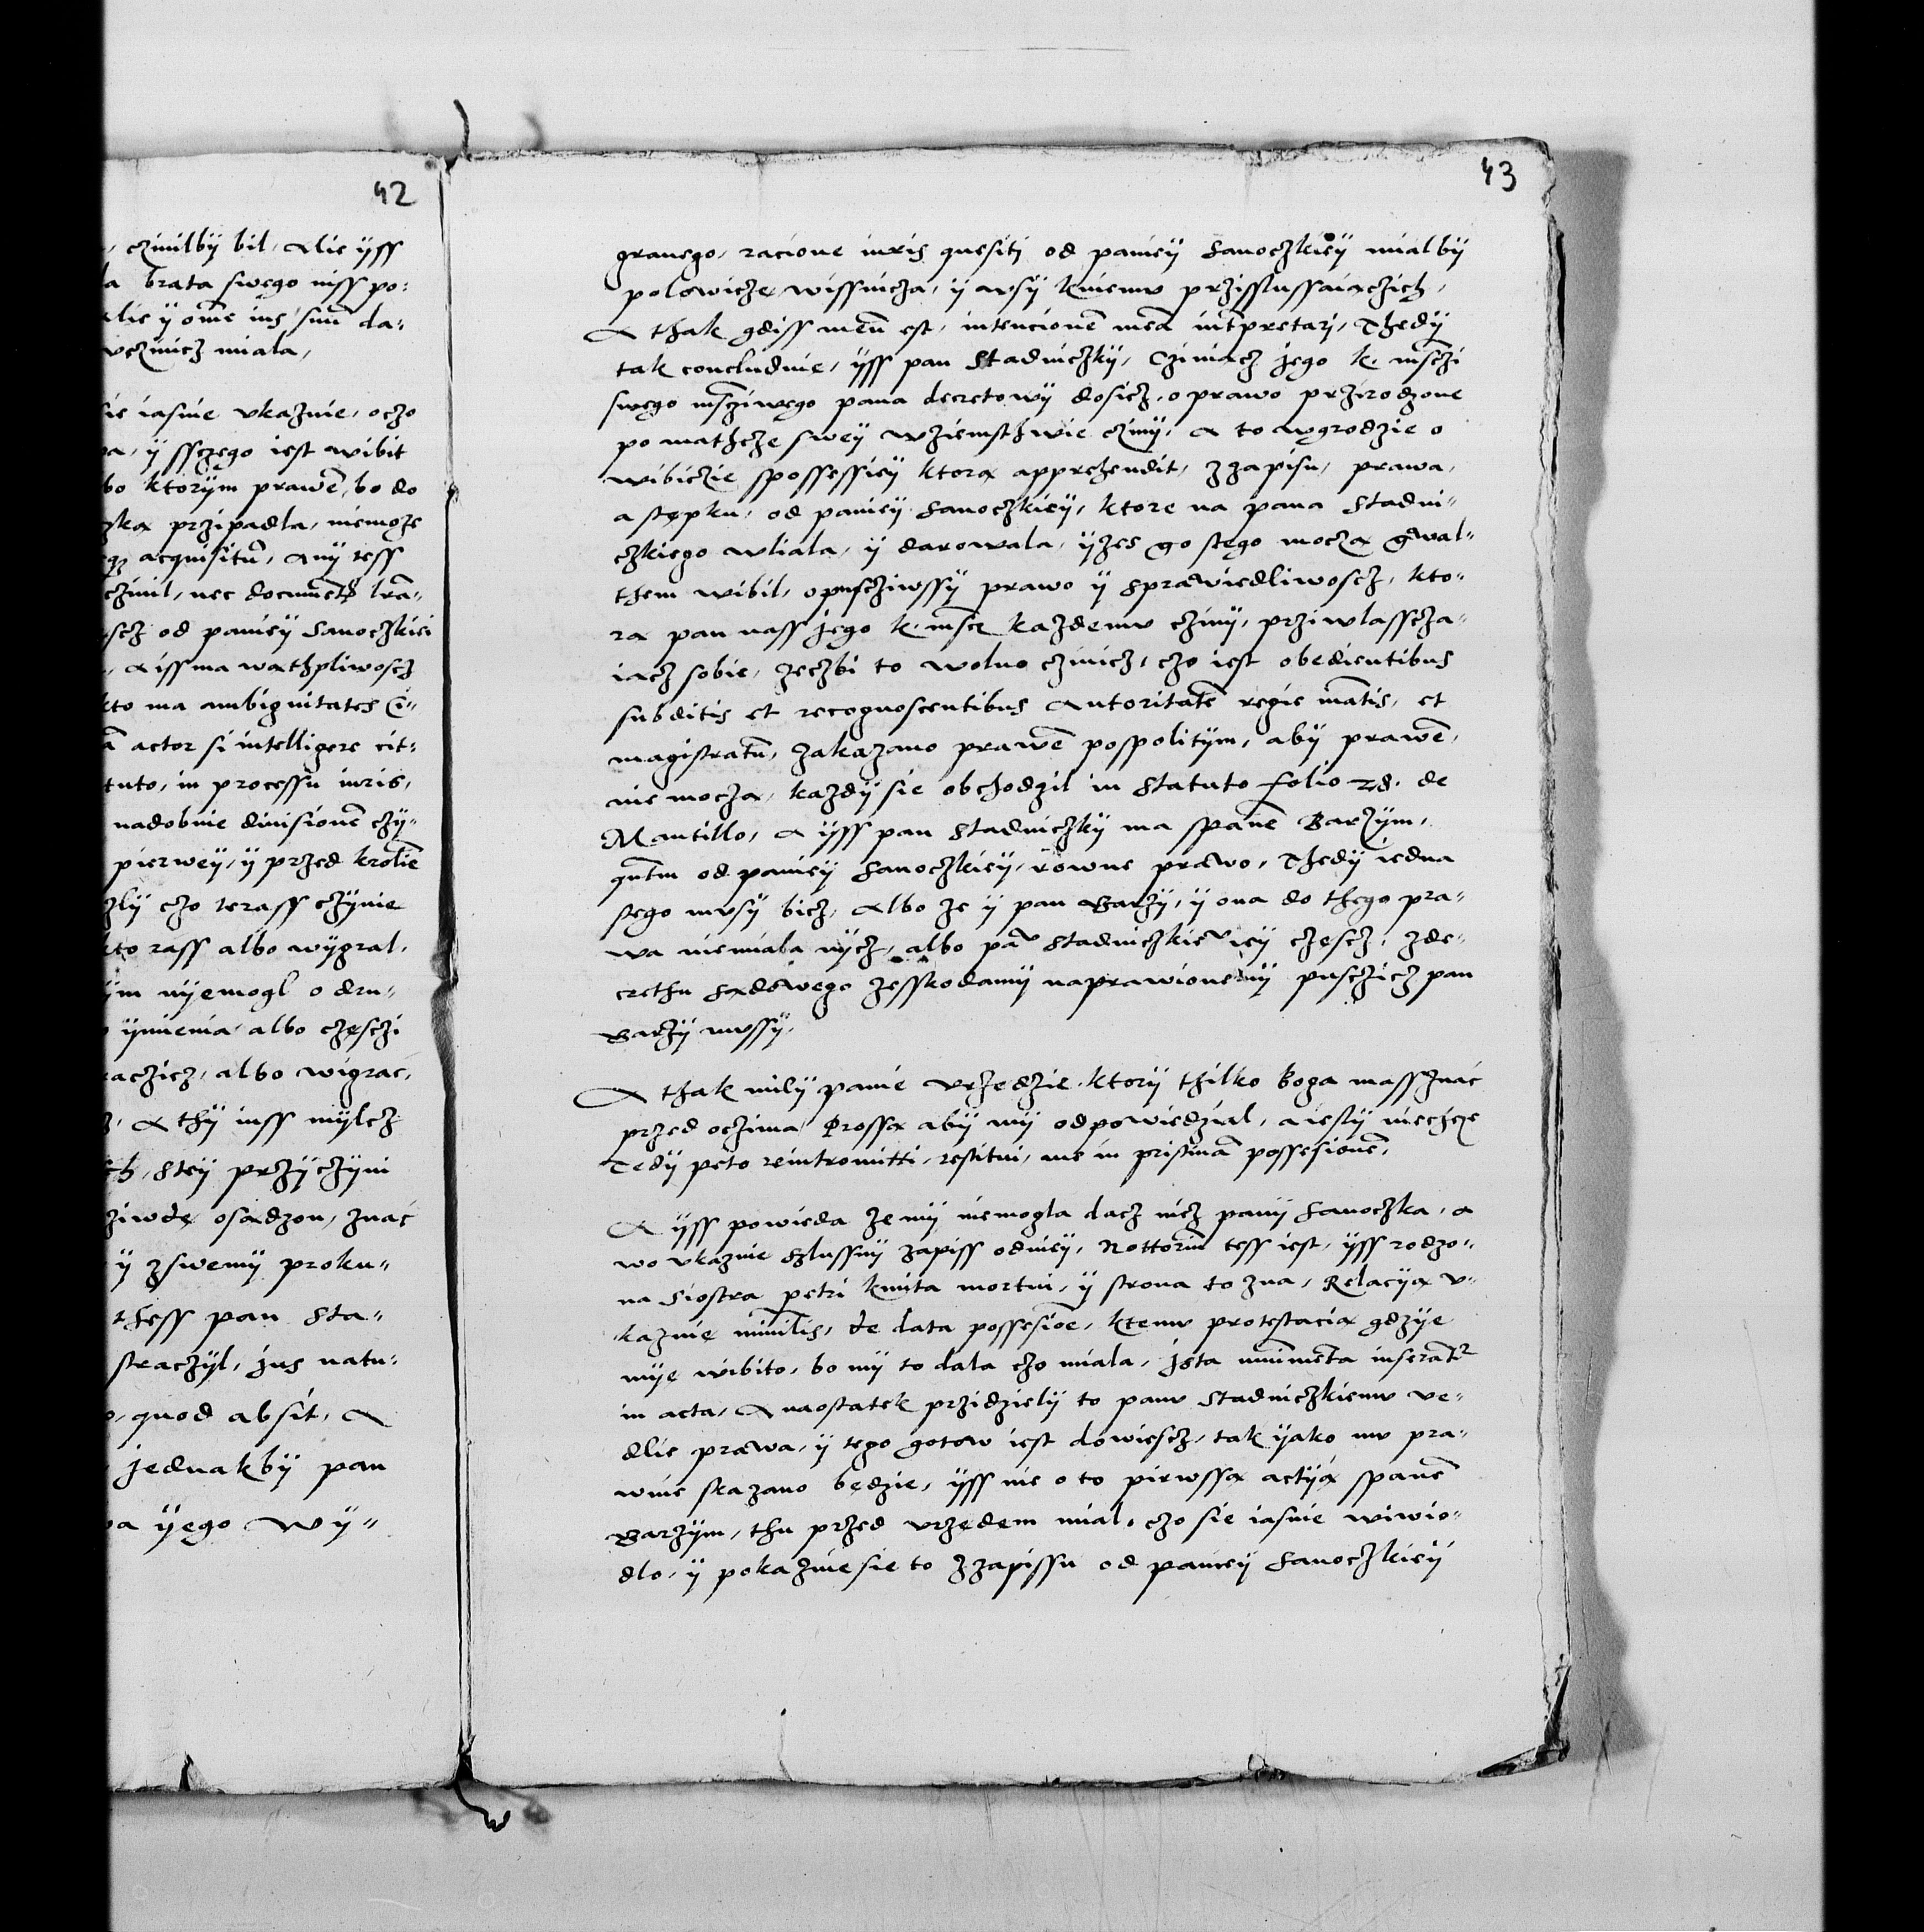 42
, czinilbÿ bil, Alie ÿss
a brata swego niss po:
lie ÿ om̃e ius suũ da:
vczinicz miala,
sie iasnie vkaznie, oczo
a, ÿ ssczego iest wibit
bo ktorÿm prawẽ, bo do
ka przipadla, niemoze
acquisitũ, Anÿ tess
czinil, nec documẽta lr̃a:
scz od paniey Sanoczkiei
, Aiss ma wathpliwoscz
kto ma ambiguitates
actor si intelligere cit:
tuto, in processu iuris,
nadobnie diuisionẽ czÿ:
pierweÿ, ÿ przed krolẽ
zlÿ czo terass czÿnie
kto rass albo wÿgral,
ÿm nÿemogl o dru:
ÿmienia albo częschi
raczicz, albo wigrac,
A thÿ iuss mÿlcz
steÿ przÿczÿni
ziwdę osadzon, znac
ÿ zswemÿ proku:
thess pan Sta:
straczÿl, jus natu:
quod absit, A
jednakbÿ pan
a ÿego wÿ:
43
granego, racione iuris quesiti od panieÿ Sanoczkieÿ mialbÿ
polowicze wissnicza, ÿ wsÿ kniemv przisslussaiaczich,
A thak gdiss meũ est, intencionẽ meã int̃pretari, Thedÿ
tak concludnię, ÿss pan Stadniczkÿ, Cziniacz jego k. msczi
swego msc̃ziwego pana decretowÿ dosicz, o prawo przirodzone
po mathcze sweÿ wziemsthwie czinÿ, A to wgrodzie o
wibiczie spossessieÿ ktora apprehendit, zzapisu, prawa,
astępku, od panieÿ Sanoczkieÿ, ktore na pana Stadni:
czkiego wliala, ÿ darowala, ÿzes go stego mocza gwal:
them wibil, opusczwissÿ prawo ÿ sprawiedliwoscz, kto:
ra pan nass jego k. msc̃ kazdemv czinÿ, przi wlasscza:
iacz sobie, zeczbi to wolno czinicz, czo iest obedientibus
subditis et recognoscentibus Autoritatẽ regie mãtis, et
magistratũ, zakazano prawẽ pospolitÿm, abÿ prawẽ,
nie mocza, kazdÿ sie obchodzil in Statuto folio 28. de
Mantillo, A ÿss pan Stadniczkÿ ma spanẽ Barzÿm,
quãtm od panieÿ Sanoczkieÿ, rowne prawo, Thedÿ iedna
stego mvsÿ bicz, Albo ze ÿ pan Barzÿ, ÿ ona do thego pra:
wa niemiala nÿcz, albo pãv Stadniczkiemv ieÿ częscz, zde:
crethu sadowego zesskodamÿ naprawionemÿ pusczicz pan
Barzÿ mvssÿ,
A thak milÿ panie vrzędzie, ktorÿ thilko boga masszznac
przed oczima, Prossę abÿ mÿ odpowiedzial, a iestlÿ niechcze
Tedÿ peto reintromitti, restitui, me in pristinã possesionẽ,
A ÿss powieda ze mÿ niemogla dacz nicz panÿ Sanoczka, a
wo vkaznie sluszny zapiss odnieÿ, Nottoriũ tess iest, ÿss rodzo:
na Siostra petri kmita mortui, ÿ strona to zna, Relacÿa v:
kaznię minilis, de data possesiõe, ktemv protestacia gdzÿe
mÿę wibito, bo mÿ to dala czo miala, jsta munimẽta inserãtr
in acta, A naostatek przidzielÿ to panv Stadniczkiemv ve:
dlie prawa, ÿ tego gotow iest dowiescz, tak ÿako mv pra:
wnie skazano będzie, ÿss nie o to pirwssa actÿa spanẽ
Barzÿm, thu przed vrzędem mial, czo sie iasnie wiwio:
dlo, ÿ pokaznie sie to zzapissu od panieÿ Sanoczkieÿ